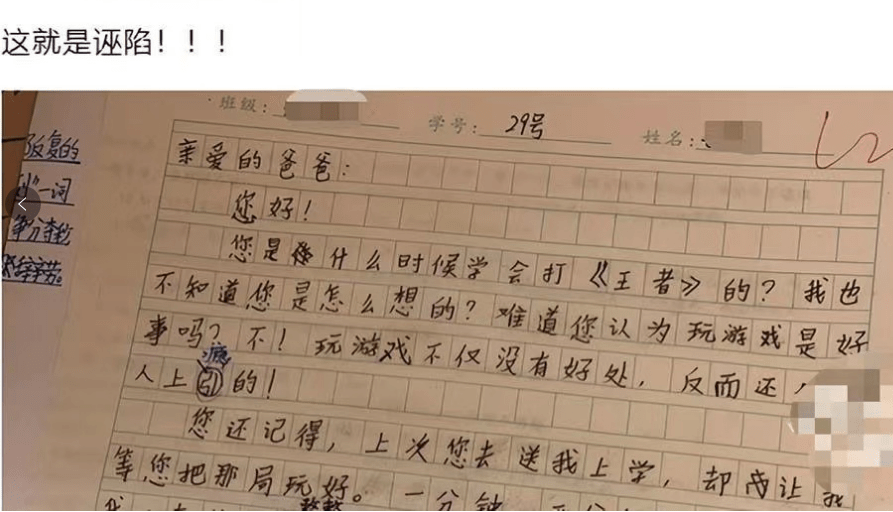 这就是诬陷！！！
班级：
学号：29号
姓名：
反复的
一词
争分夺秒
亲爱的爸爸：
您好！
您是什么时候学会打《王者》的？我也
不知道您是怎么想的？难道您认为玩游戏是好
事吗？不！玩游戏不仅没有好处，反而还
瘾
人上引的！
您还记得，上次您去送我上学，却让我
等您把那局玩好。一分钟
整整